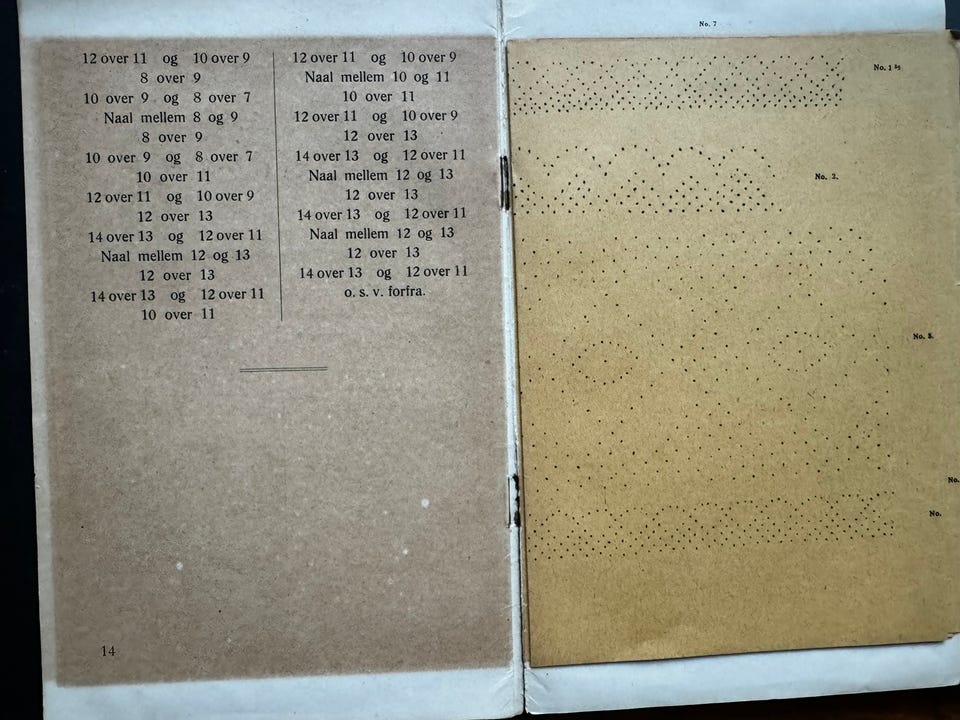 12 over 11 og 10 over 9
8 over 9
10 over 9 og 8 over 7
Naal mellem 8 og 9
8 over 9
10 over 9 og 8 over 7
10 over 11
12 over 11 og 10 over 9
12 over 13
14 over 13 og 12 over 11
Naal mellem 12 og 13
12 over 13
14 over 13 og 12 over 11
10 over 11
12 over 11 og 10 over 9
Naal mellem 10 og 11
10 over 11
12 over 11 og 10 over 9
12 over 13
14 over 13 og 12 over 11
Naal mellem 12 og 13
12 over 13
14 over 13 og 12 over 11
Naal mellem 12 og 13
12 over 13
14 over 13 og 12 over 11
o. s. v. forfra.
14
No. 7
No. 1
No.
No.
No.
No.